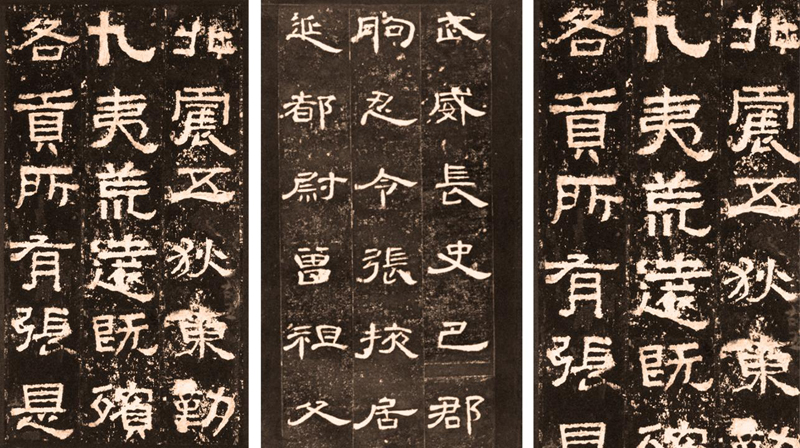 北震五狄東勤
九夷荒遠既殯
各貢所有張是
武威長史巴郡
朐忍令張掖居
延都尉曾祖父
北震五狄東勤
九夷荒遠既殯
各貢所有張是